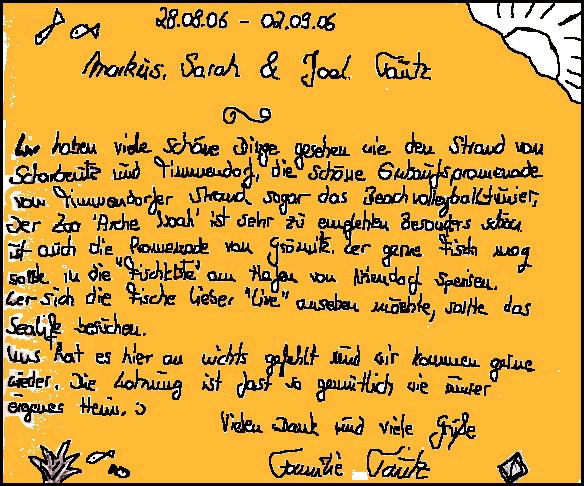 28.08.06 - 02.09.06
Markus, Sarah & Joel Tautz
Wir haben viele schöne Dinge gesehen wie den Strand von
Scharbeutz und Timmendorf, die schöne Einkaufspromenade
vom Timmendorfer Strand sogar das Beachvolleyballturnier.
Der Zoo "Arche Noah" ist sehr zu empfehlen. Besonders schön
ist auch die Promenade von Grömitz. Wer gerne Fisch mag
sollte in die "Fischkiste" am Hafen von Niendorf speisen.
Wer sich die Fische lieber "Live" ansehen möchte, sollte das
Sealife besuchen.
Uns hat es hier an nichts gefehlt und wir kommen gerne
wieder. Die Wohnung ist fast so gemütlich wie unser
eigenes Heim. :)
Vielen Dank und viele Grüße
Familie Tautz